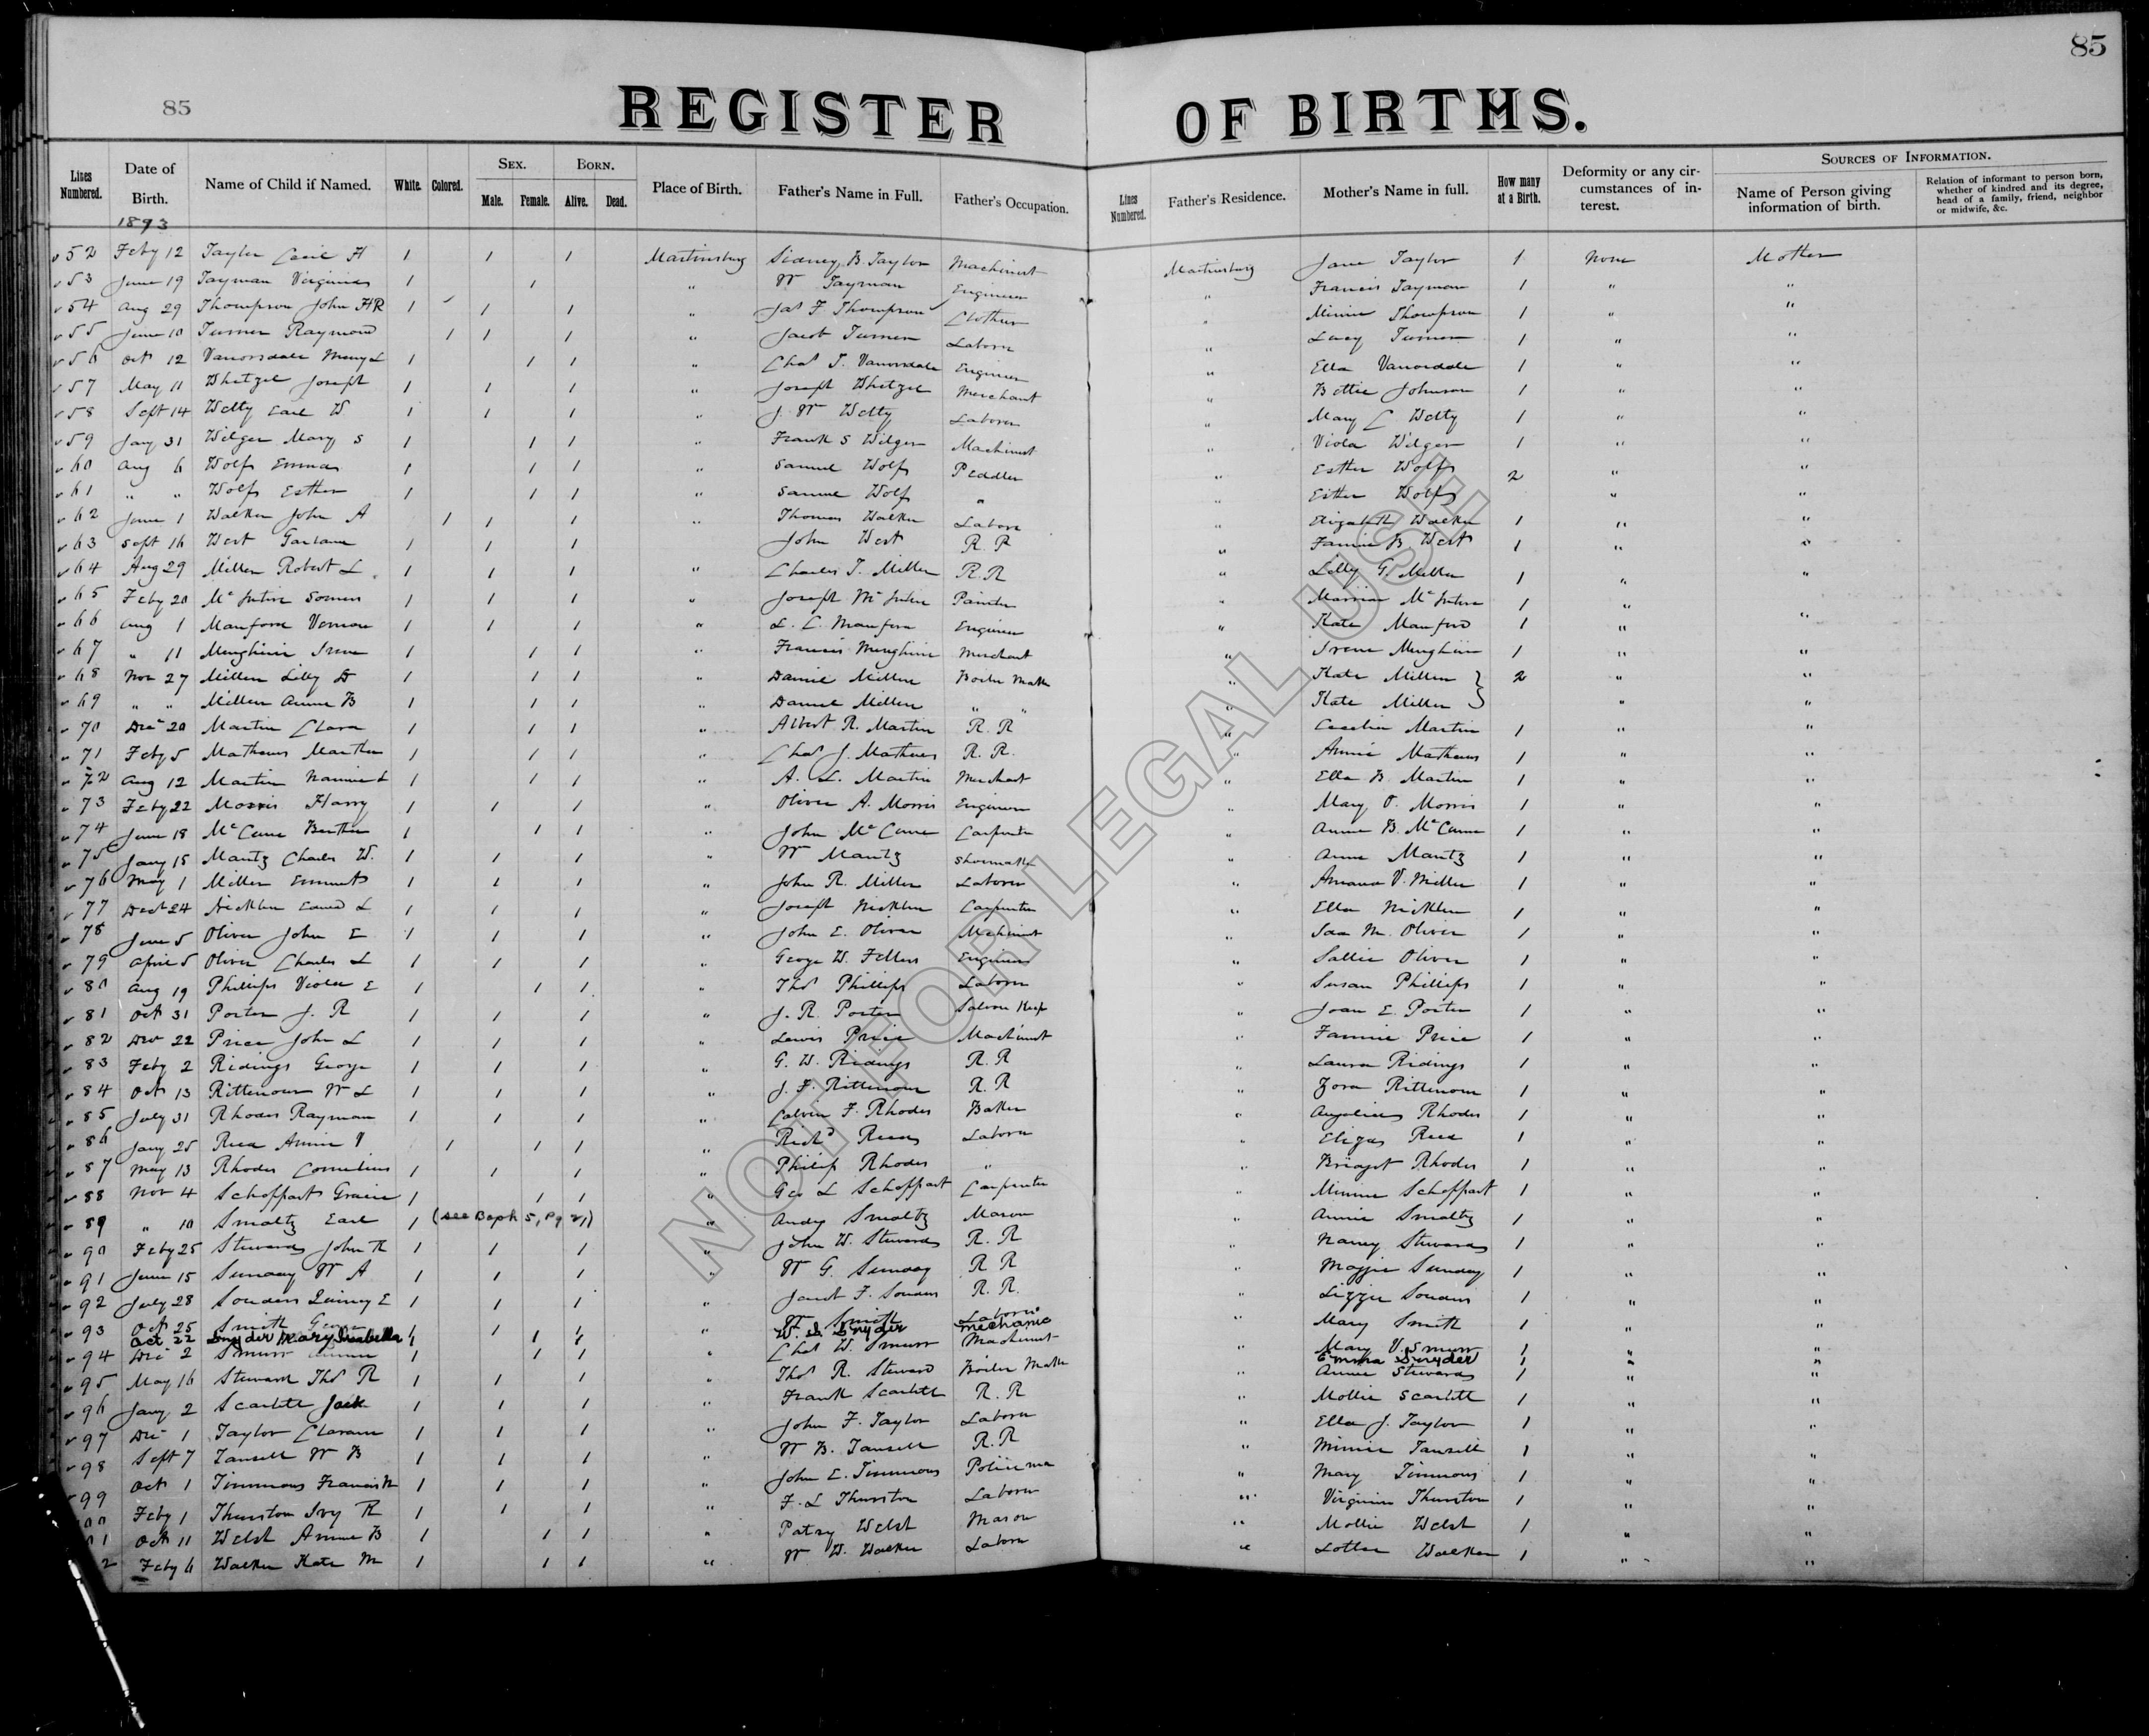 85
85
REGISTER OF BIRTHS.
Lines Numbered. Date of Birth. Name of Child if Named. White. Colored. Sex. Male. Female. Born. Alive. Dead. Place of Birth. Father's Name in Full. Father's Occupation. Lines Numbered. Father's Residence. Mother's Name in full. How many at a Birth. Deformity or any circumstances of interest. Sources of Information. Name of Person giving information of birth. Relation of informant to person born, whether of kindred and its degree, head of a family, friend, neighbor or midwife, &c.
1893
52 Feby 12 Taylor Cecil H 1 1 1 Martinsburg Sidney B. Taylor Machinist Martinsburg Jane Taylor 1 None Mother
53 June 19 Tayman Virginia 1 1 " Wm Tayman Engineer " Francis Tayman 1 " "
54 Aug 29 Thompson John HR 1 1 1 " Jas F. Thompson Clothier " Minnie Thompson 1 " "
55 June 10 Turner Raymond 1 1 1 " Jacob Turner Laborer " Lucy Turner 1 " "
56 Oct 12 Vanorsdale Mary L 1 1 1 " Chas T. Vanorsdale Engineer " Ella Vanorsdale 1 " "
57 May 11 Whetzel Joseph 1 1 1 " Joseph Whetzel Merchant " Bettie Johnson 1 " "
58 Sept 14 Welty Earl W 1 1 1 " J. W Welty Laborer " Mary C Welty 1 " "
59 Jany 31 Wilger Mary S 1 1 1 " Frank S Wilger Machinist " Viola Wilger 1 " "
60 Aug 6 Wolf Emma 1 1 1 " Samuel Wolf Peddler " Esther Wolf 2 " "
61 " " Wolf Esther 1 1 1 " Samuel Wolf " " Esther Wolf " "
62 June 1 Walker John A 1 1 1 " Thomas Walker Laborer " Elizabeth Walker 1 " "
63 Sept 16 West 1 1 1 John West R. R " Fannie B West 1 " "
64 Aug 29 Miller Robert L. 1 1 1 " Charles T. Miller R. R " Lilly G. Miller 1 " "
65 Feby 20 McIntire Somers 1 1 1 " Joseph McIntire Painter " McIntire 1 "
66 Aug 1 Manford Vernon 1 1 1 " L. C. Manford Engineer " Kate Manford 1 " "
67 " 11 Menghini Irene 1 1 1 " Francis Menghini Merchant " Irene Menghini 1 " "
68 Nov 27 Miller Lilly D 1 1 1 " Daniel Miller Boiler Maker " Kate Miller } 2 " "
69 " " Miller Annie B 1 1 1 " Daniel Miller " " " Kate Miller } " "
70 Dec 20 Martin Clara 1 1 1 " Albert R. Martin R. R " Cecelia Martin 1 " "
71 Feby 5 Mathews Martha 1 1 1 " Chas J. Mathews R. R. " Annie Mathews 1 " "
72 Aug 12 Martin Nannie L 1 1 1 " A. L. Martin Merchant " Ella B. Martin 1 " "
73 Feby 22 Morris Harry 1 1 1 " Oliver A. Morris Engineer " Mary O. Morris 1 " "
74 June 18 McCune Bertha 1 1 1 " John McCune Carpenter " Annie B. McCune 1 " "
75 Jany 15 Mantz Charles W. 1 1 1 " Wm Mantz Shoemaker " Anna Mantz 1 " "
76 May 1 Miller Emmert 1 1 1 " John R. Miller Laborer " V. Miller 1 " "
77 Dec 24 Nicklen Edward L 1 1 1 " Joseph Nicklen Carpenter " Ella Nicklen 1 " "
78 June 5 Oliver John E 1 1 1 " John E. Oliver Machinist " Ida M. Oliver 1 " "
79 April 5 Oliver Charles L 1 1 1 " George W. Fellers Engineer " Sallie Oliver 1 " "
80 Aug 19 Phillips Viola E 1 1 1 " Thos Phillips Laborer " Susan Phillips 1 " "
81 Oct 31 Porter J. R 1 1 1 " J. R. Porter Saloon Keep " Joan E. Porter 1 " "
82 Dec 22 Price John L 1 1 1 " Lewis Price Machinist " Fannie Price 1 " "
83 Feby 2 Ridings George 1 1 1 " G. W. Ridings R. R " Laura Ridings 1 " "
84 Oct 13 Rittenour W L 1 1 1 " J. F. Rittenour R. R " Zora Rittenour 1 " "
85 July 31 Rhodes Rayman 1 1 1 " Calvin F. Rhodes Baker " Angelina Rhodes 1 " "
86 Jany 25 Reed Annie V 1 1 1 " Richd Reed Laborer " Eliza Reed 1 " "
87 May 13 Rhodes Cornelius 1 1 1 " Philip Rhodes " " Bridget Rhodes 1 " "
88 Nov 4 Schoppert Gracie 1 1 1 " Geo L Schoppert Carpenter " Minnie Schoppert 1 " "
89 " 10 Smaltz Earl 1 (see Book 5, Pg 21) " Andy Smaltz Mason " Annie Smaltz 1 " "
90 Feby 25 Steward John R 1 1 1 " John W. Steward R. R " Nancy Steward 1 " "
91 June 15 Sunday W A 1 1 1 " W G. Sunday R R " Maggie Sunday 1 " "
92 July 28 Souders Quincy E 1 1 1 " Jacob F. Souders R. R. " Lizzie Souders 1 " "
93 Oct 25 Smith George 1 1 1 " Wm Smith Laborer " Mary Smith 1 " "
Oct 22 Snyder Mary Isabella 1 1 1 W. D. Snyder mechanic Emma Snyder 1 " "
94 Dec 2 Smurr 1 1 1 " Chas W. Smurr Machinist " Mary V. Smurr 1 " "
95 May 16 Steward Thos R 1 1 1 " Thos R. Steward Boiler Maker " Annie Steward 1 " "
96 Jany 2 Scarlett Jack 1 1 1 " Frank Scarlett R. R " Mollie Scarlett 1 " "
97 Dec 1 Taylor Clarance 1 1 1 " John F. Taylor Laborer " Ella J. Taylor 1 " "
98 Sept 7 Tansill W B 1 1 1 " W B. Tansill R. R " Minnie Tansill 1 " "
99 Oct 1 Timmons Francis M 1 1 1 " John E. Timmons Policeman " Mary Timmons 1 " "
00 Feby 1 Thurston Ivy R 1 1 1 " F. L Thurston Laborer " Virginia Thurston 1 " "
01 Oct 11 Welsh Annie B 1 1 1 " Patsy Welsh Mason " Mollie Welsh 1 " "
2 Feby 6 Walker Kate M 1 1 1 " W W. Walker Laborer " Lottie Walker 1 " "
NOT FOR LEGAL USE